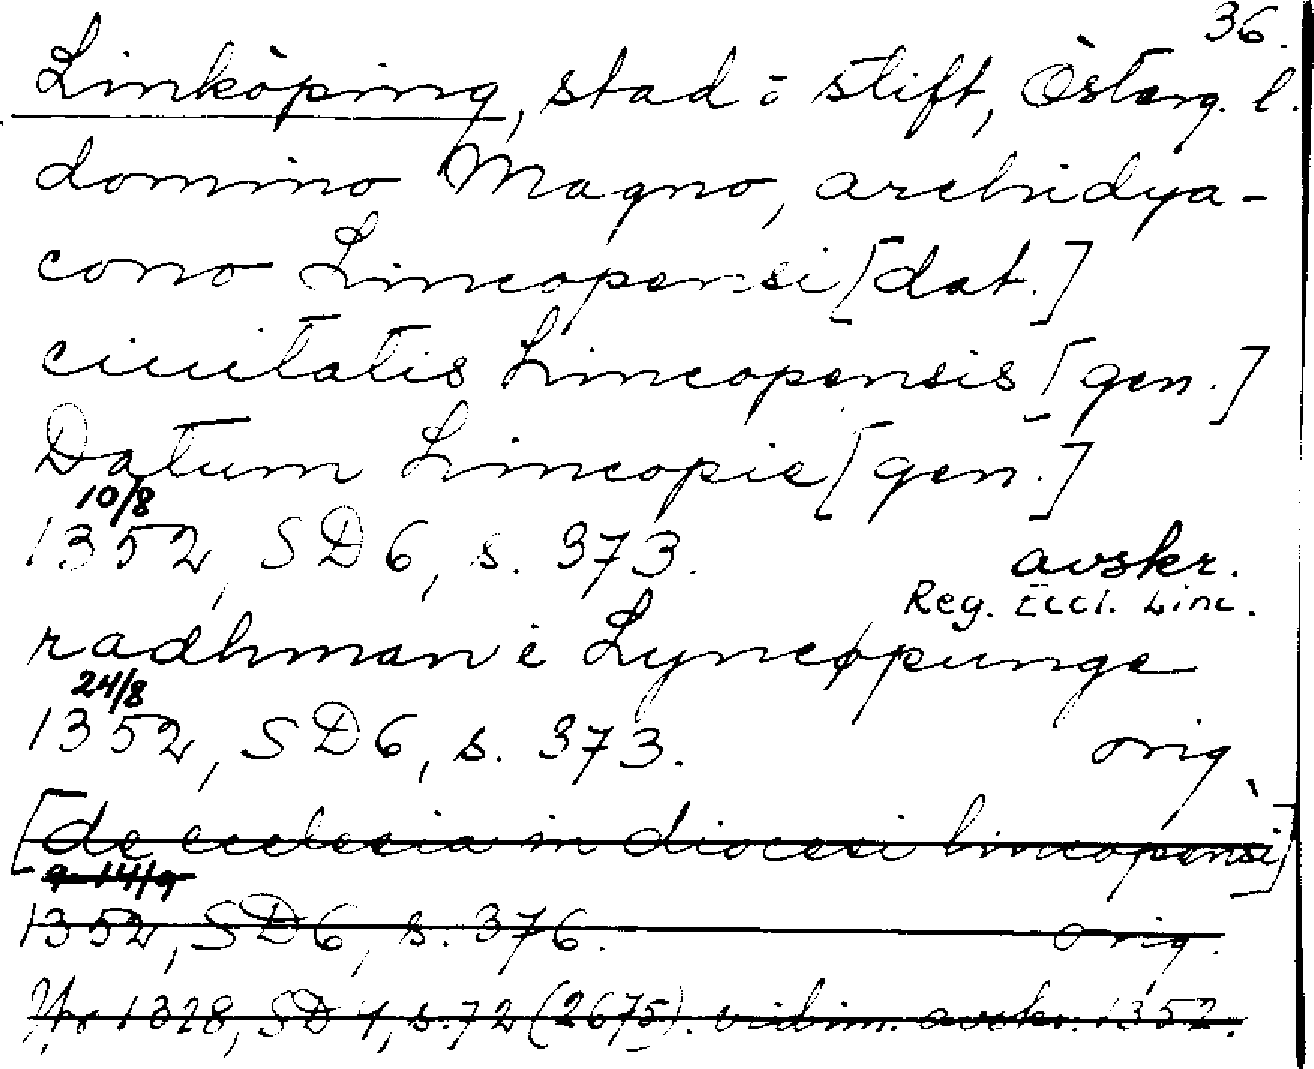 36.
Linköping, stad o stift, Österg. l.
domino Magno, archidya-
cono Lincopensi [dat.]
ciuitatis Lincopensis [gen.]
Datum Lincopie [gen.]
10/8
1352, SD 6, s. 373. avskr.
Reg. Eccl. Linc.
radhman i Lyncøpunge
24/8
1352, SD 6, s. 373. orig.
[de ecclesia in diocesi lincopensi]
9-14/9
1352, SD 6, s. 376. orig.
1328, SD 4, s. 72 (2675). vidim. avskr. 1352.